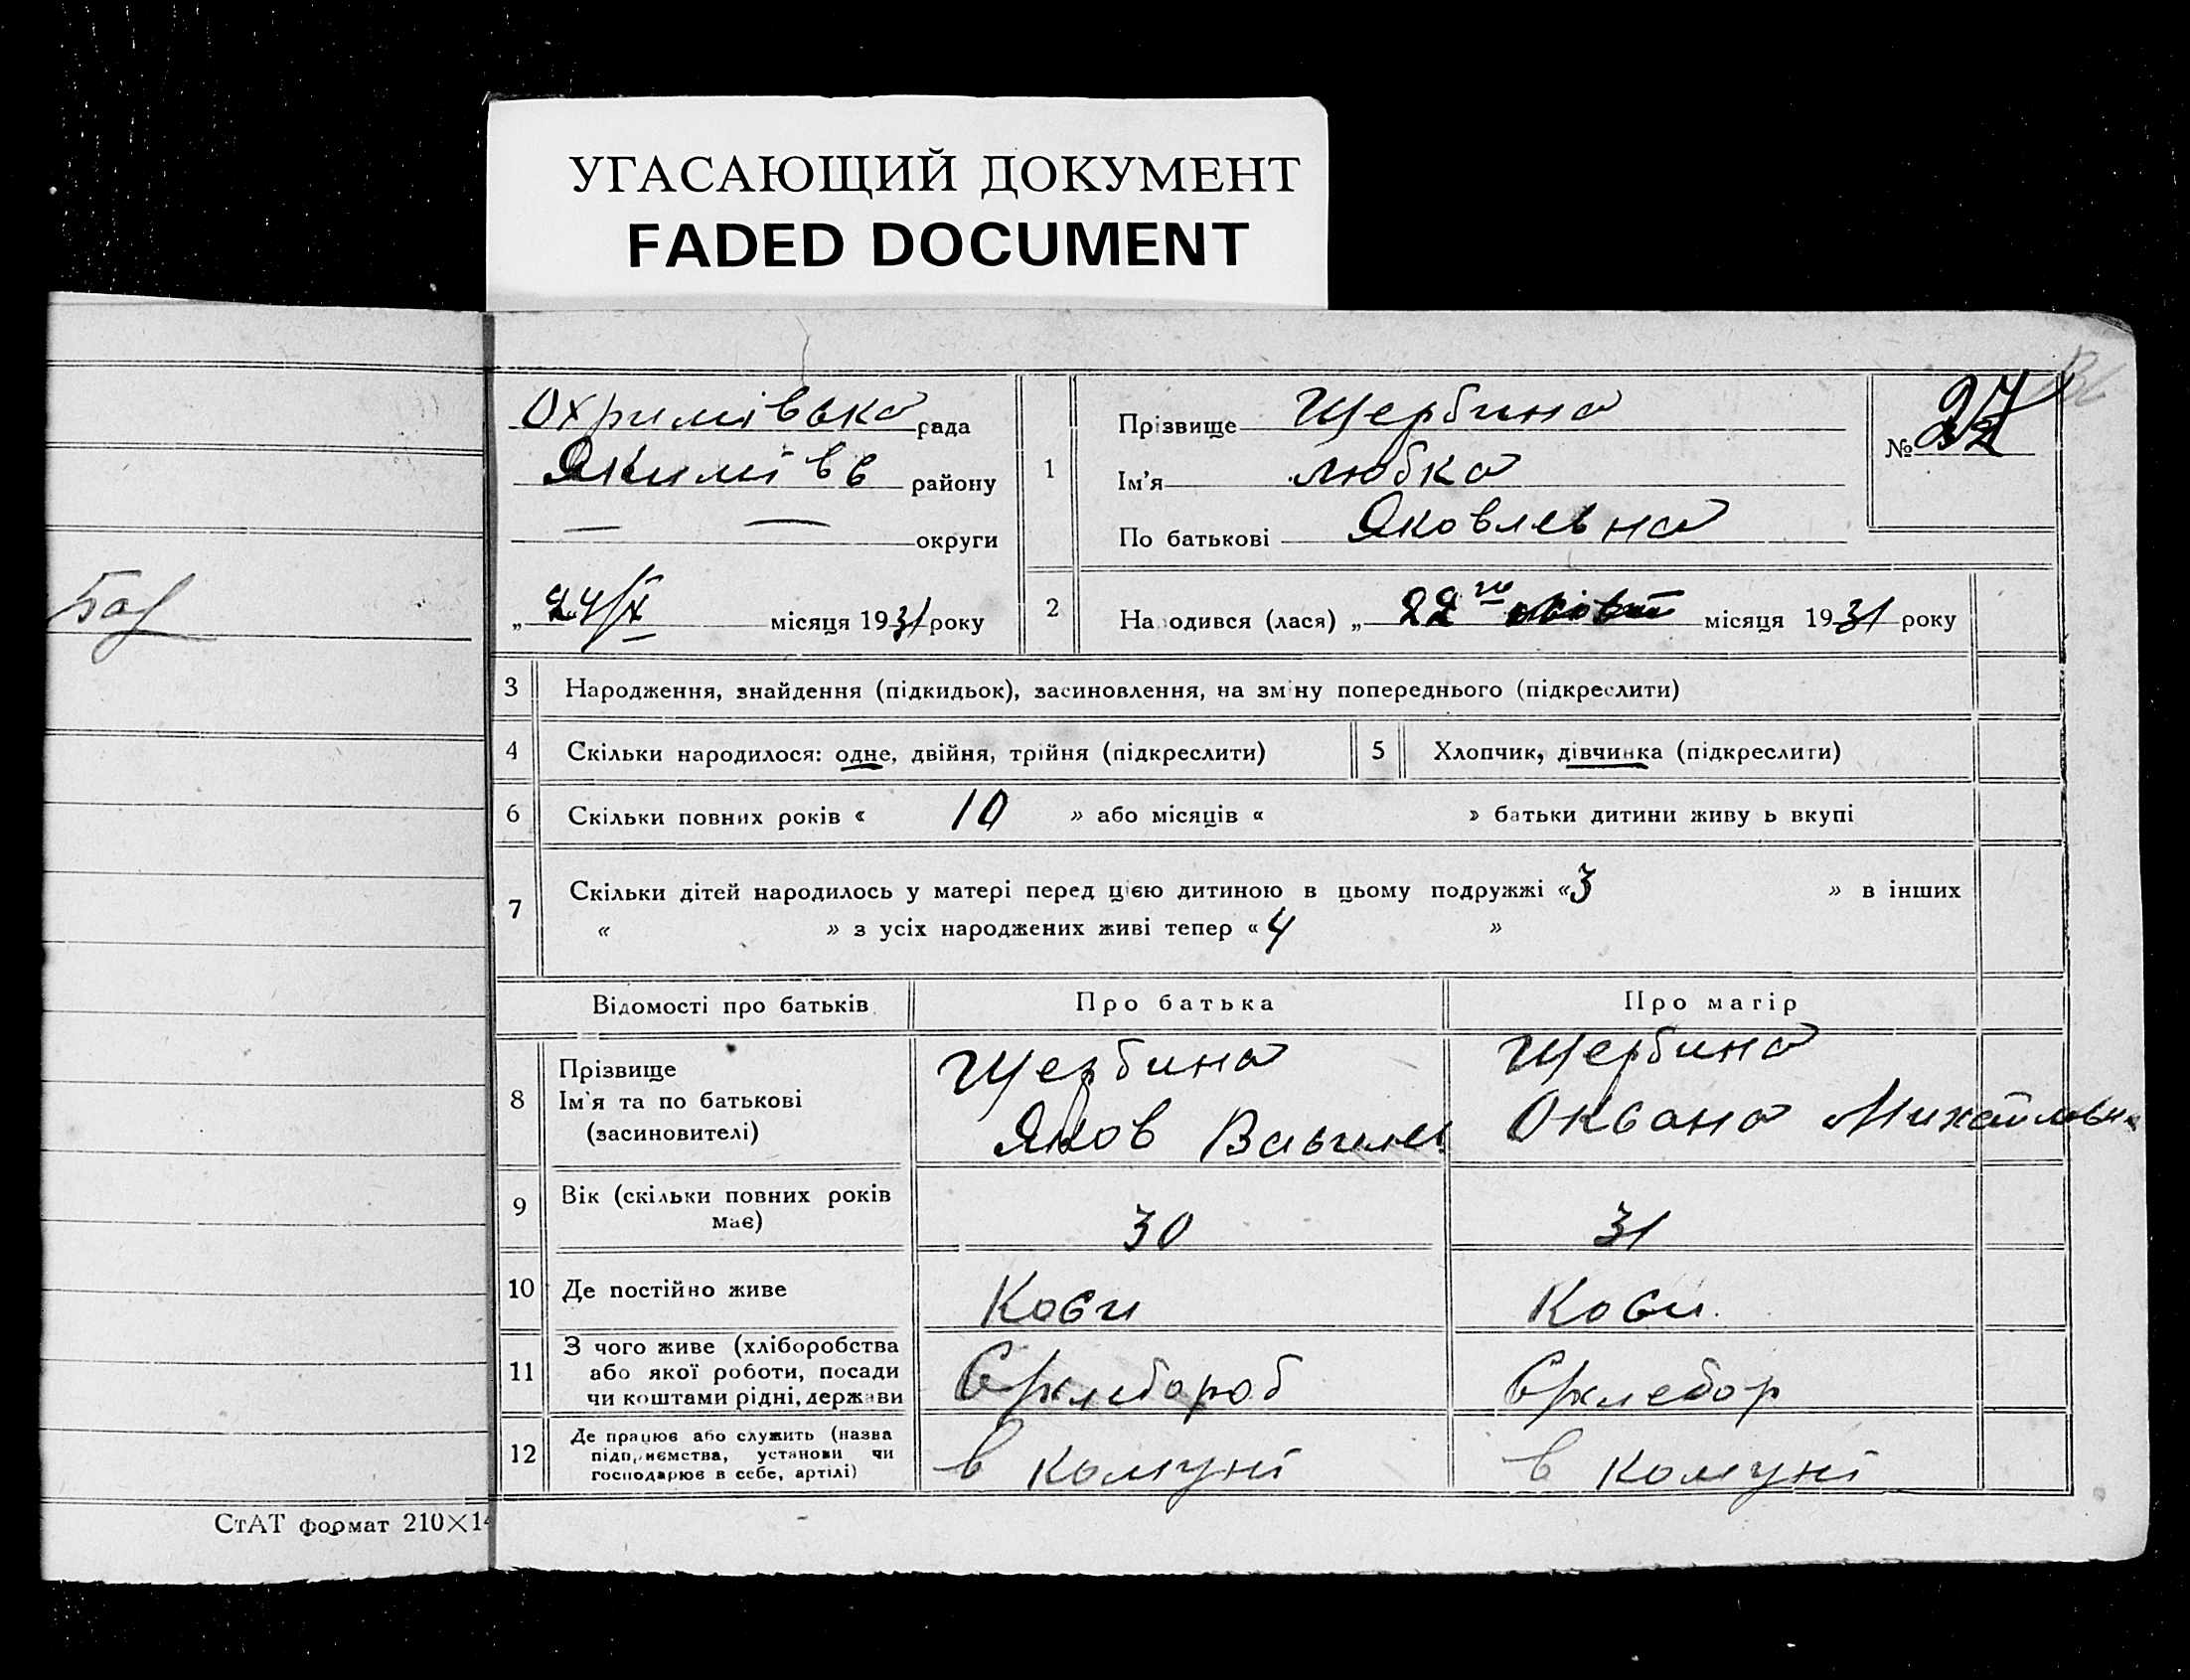 УГАСАЮЩИЙ ДОКУМЕНТ
FADED DOCUMENT
Охримівька рада
Якимівв району
— — округи
„ 24/X місяця 1931 року
1
Прізвище Щербина
Ім'я Любка
По батькові Яковлевна
№ 27
2 На одився (лася) „ 22го місяця 1931 року
3 Народження, знайдення (підкидьок), засиновлення, на зміну попереднього (підкреслити)
4 Скільки народилося: одне, двійня, трійня (підкреслити) 5 Хлопчик, дівчинка (підкреслити)
6 Скільки повних років « 10 » або місяців « » батьки дитини живу ь вкупі
7 Скільки дітей народилось у матері перед цією дитиною в цьому подружжі « 3 » в інших
« » з усіх народжених живі тепер « 4 »
Відомості про батьків Про батька Про матір
8 Прізвище
Ім'я та по батькові
(засиновителі)
Щербина
Яков
Щербина
Оксана Михайловн
9 Вік (скільки повних років
має)
30 31
10 Де постійно живе
11 З чого живе (хліборобства
або якої роботи, посади
чи коштами рідні, держави
12 Де працює або служить (назва
підприємства, установи чи
господарює в себе, артілі)
в комуні в комуні
СтАТ формат 210×14